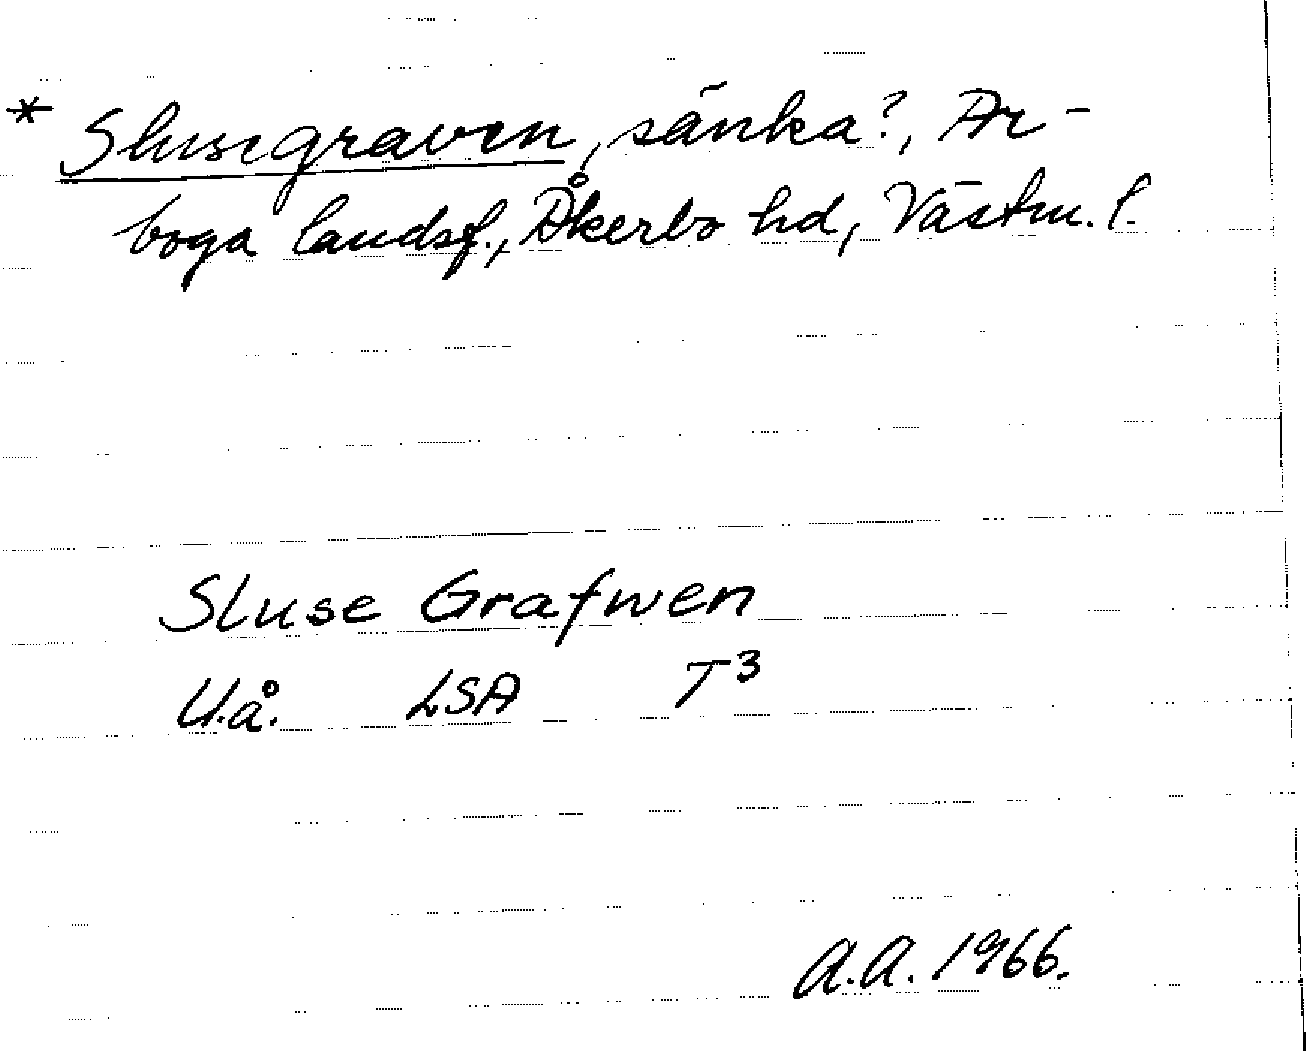 * Slusegraven, sänka?, Ar-
boga landsf., Åkerbo hd, Västm. l.
Sluse Grafwen
U.å. LSA T³
A.A. 1966.